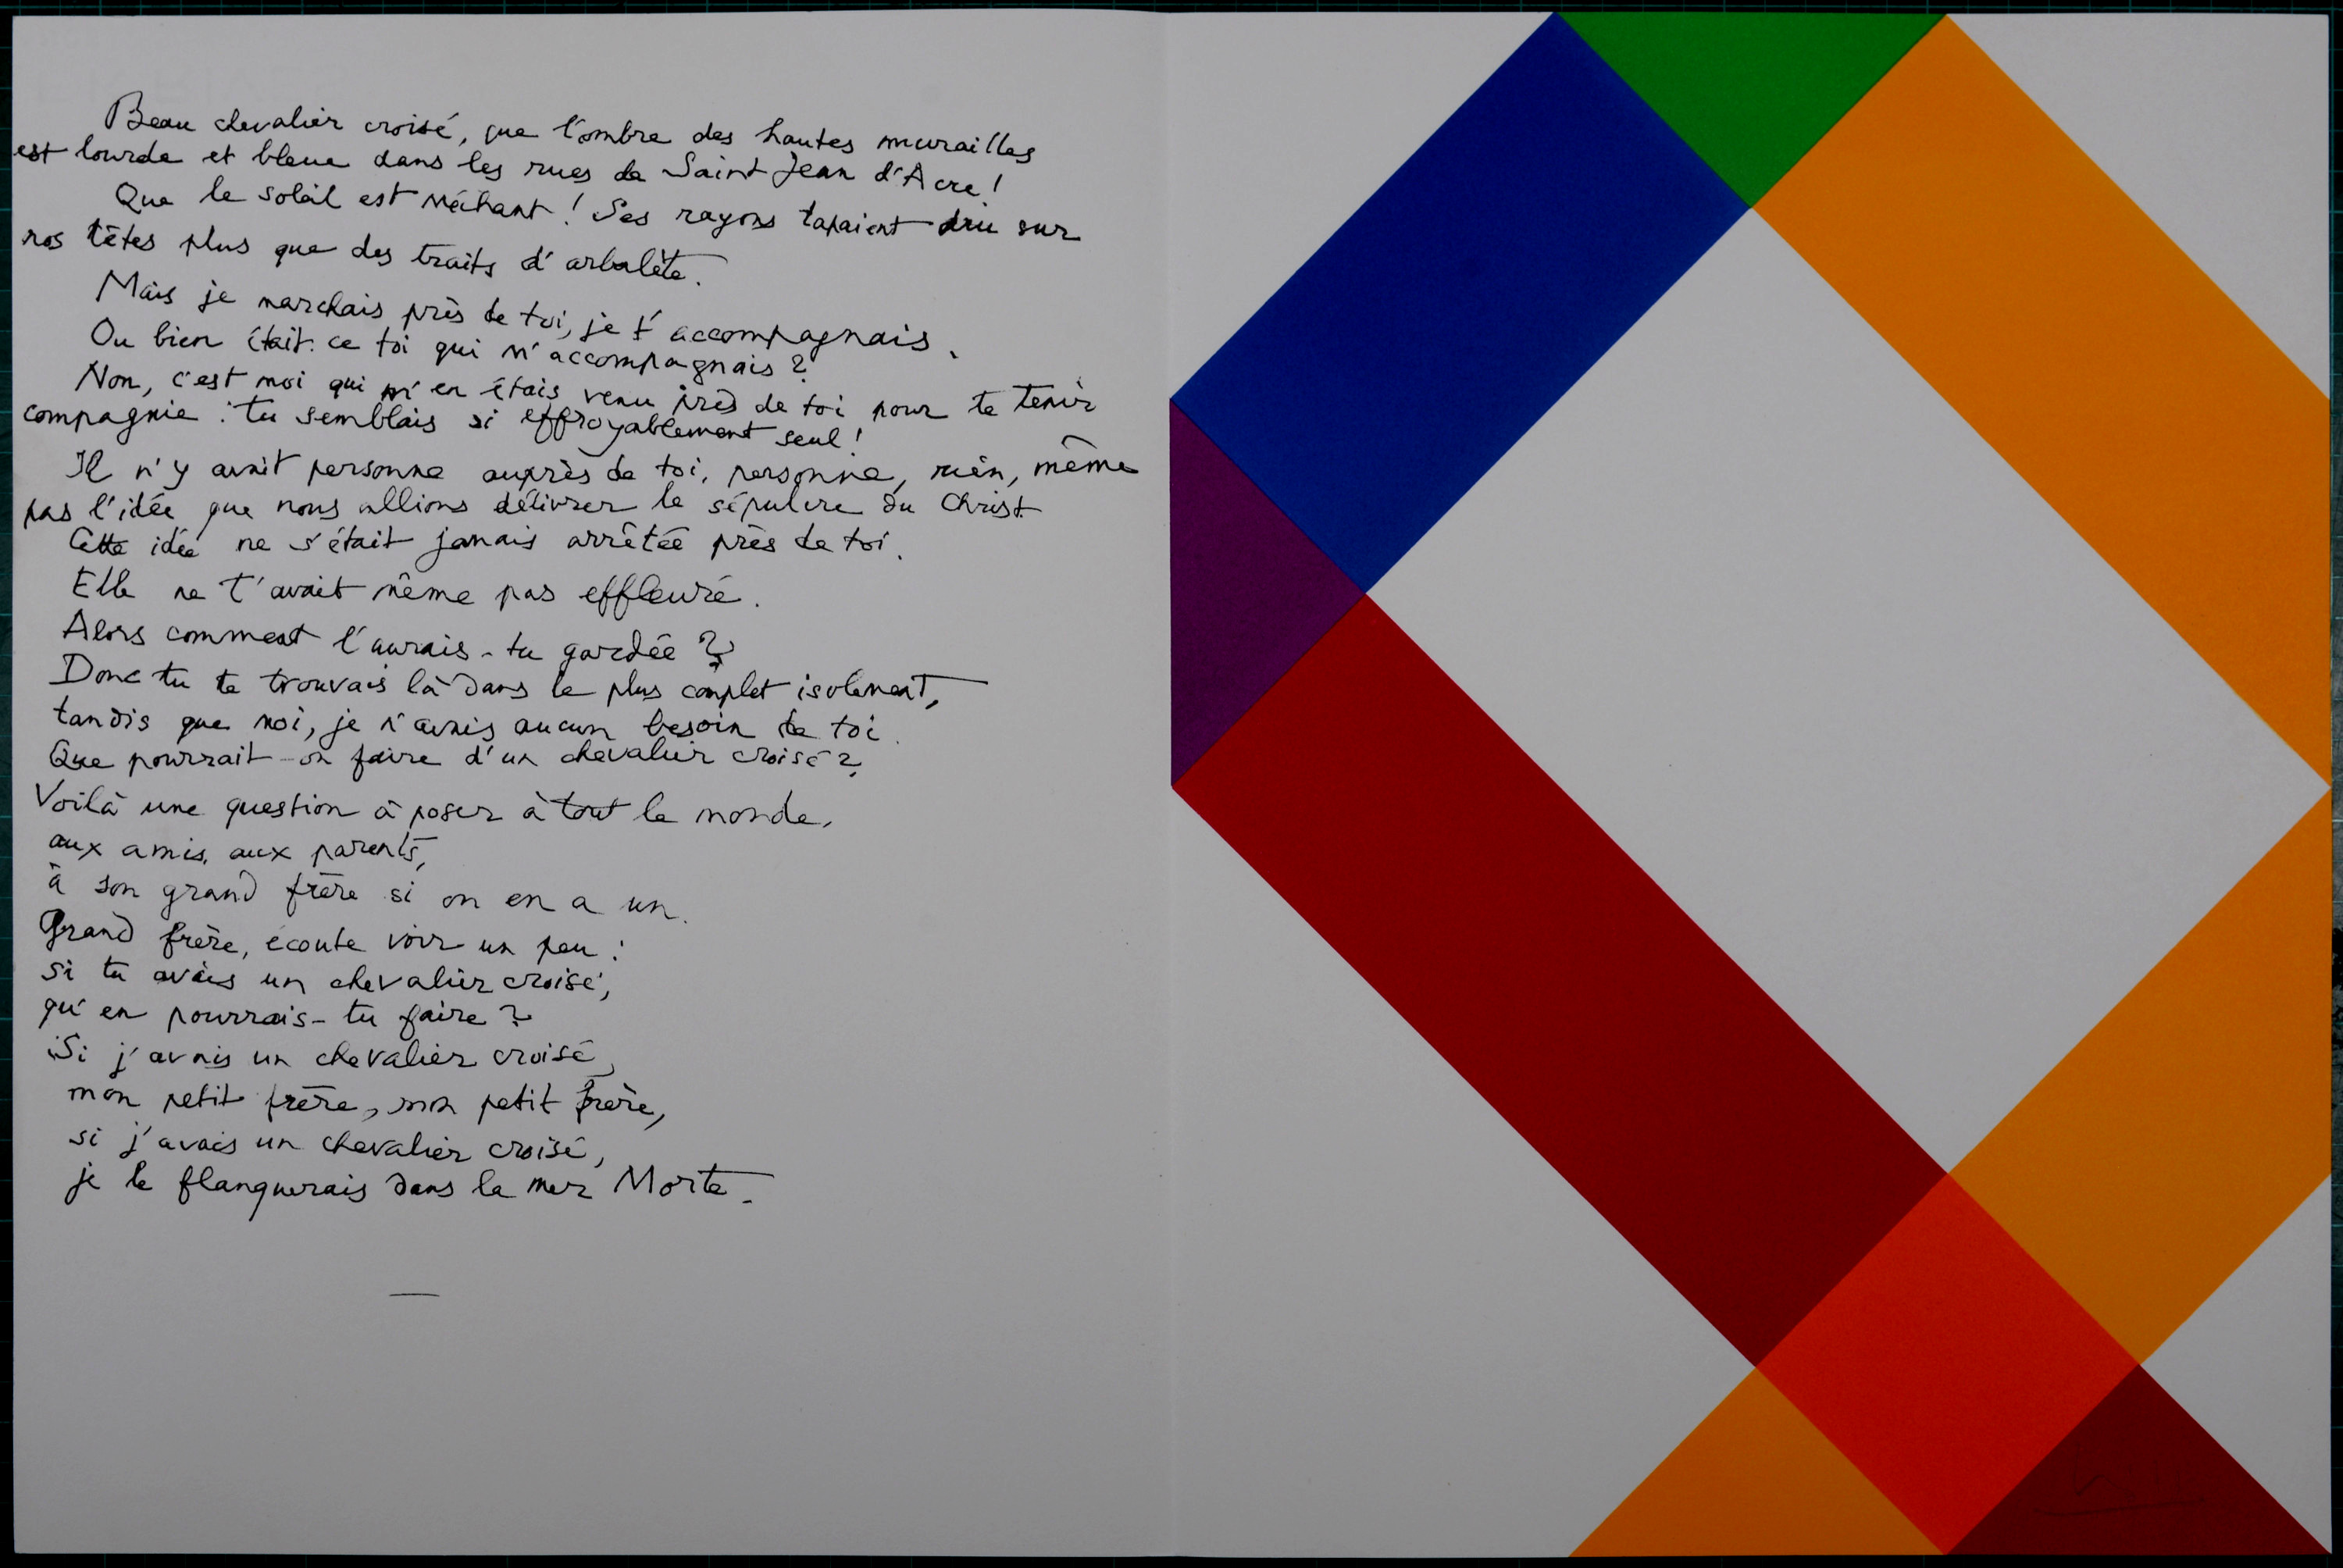 Beau chevalier croisé, que l'ombre des hautes murailles
est lourde et bleue dans les rues de Saint Jean d'Acre !
Que le soleil est méchant ! Ses rayons tapaient dru sur
nos têtes plus que des traits d'arbalète.
Mais je marchais près de toi, je t'accompagnais.
Ou bien était-ce toi qui m'accompagnais ?
Non, c'est moi qui m'en étais venu près de toi pour te tenir
compagnie : tu semblais si effroyablement seul !
Il n'y avait personne auprès de toi, personne, rien, même
pas l'idée que nous allions délivrer le sépulcre du Christ.
Cette idée ne s'était jamais arrêtée près de toi.
Elle ne t'avait même pas effleuré.
Alors comment l'aurais-tu gardée ?
Donc tu te trouvais là dans le plus complet isolement,
tandis que moi, je n'avais aucun besoin de toi.
Que pourrait-on faire d'un chevalier croisé ?
Voilà une question à poser à tout le monde,
aux amis, aux parents,
à son grand frère si on en a un.
Grand frère, écoute voir un peu :
si tu avais un chevalier croisé,
qu'en pourrais-tu faire ?
Si j'avais un chevalier croisé,
mon petit frère, mon petit frère,
si j'avais un chevalier croisé,
je le flanquerais dans la mer Morte.